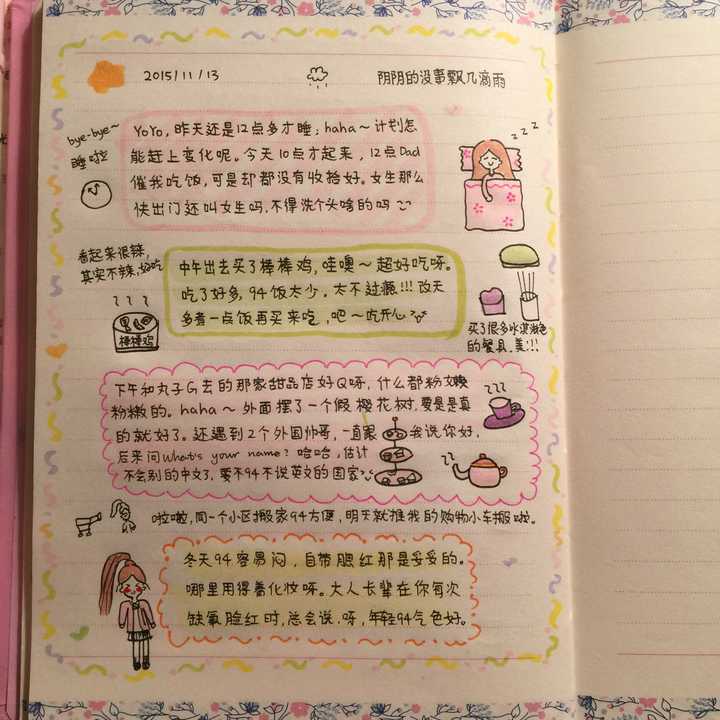 2015/11/13
阴阴的没事飘几滴雨
bye-bye~
睡啦
YoYo，昨天还是12点多才睡；haha~计划怎
能赶上变化呢。今天10点才起来，12点Dad
催我吃饭，可是却都没有收拾好。女生那么
快出门还叫女生吗，不得洗个头啥的吗
z z z
看起来很辣，
其实不辣，好吃
棒棒鸡
中午出去买了棒棒鸡，哇噢~超好吃呀。
吃了好多，94饭太少。太不过瘾!!!改天
多煮一点饭再买来吃，吧~吃开心
买了很多冰淇淋色
的餐具，美!!!
下午和丸子G去的那家甜品店好Q呀，什么都粉嫩
粉嫩的。haha~外面摆了一个假樱花树，要是是真
的就好了。还遇到2个外国帅哥，一直跟我说你好，
后来问What's your name？哈哈，估计
不会别的中文了，要不94不说英文的国家
啦啦，同一个小区搬家94方便，明天就推我的购物小车搬啦。
冬天94容易闷，自带腮红那是妥妥的。
哪里用得着化妆呀。大人长辈在你每次
缺氧脸红时，总会说，呀，年轻94气色好。